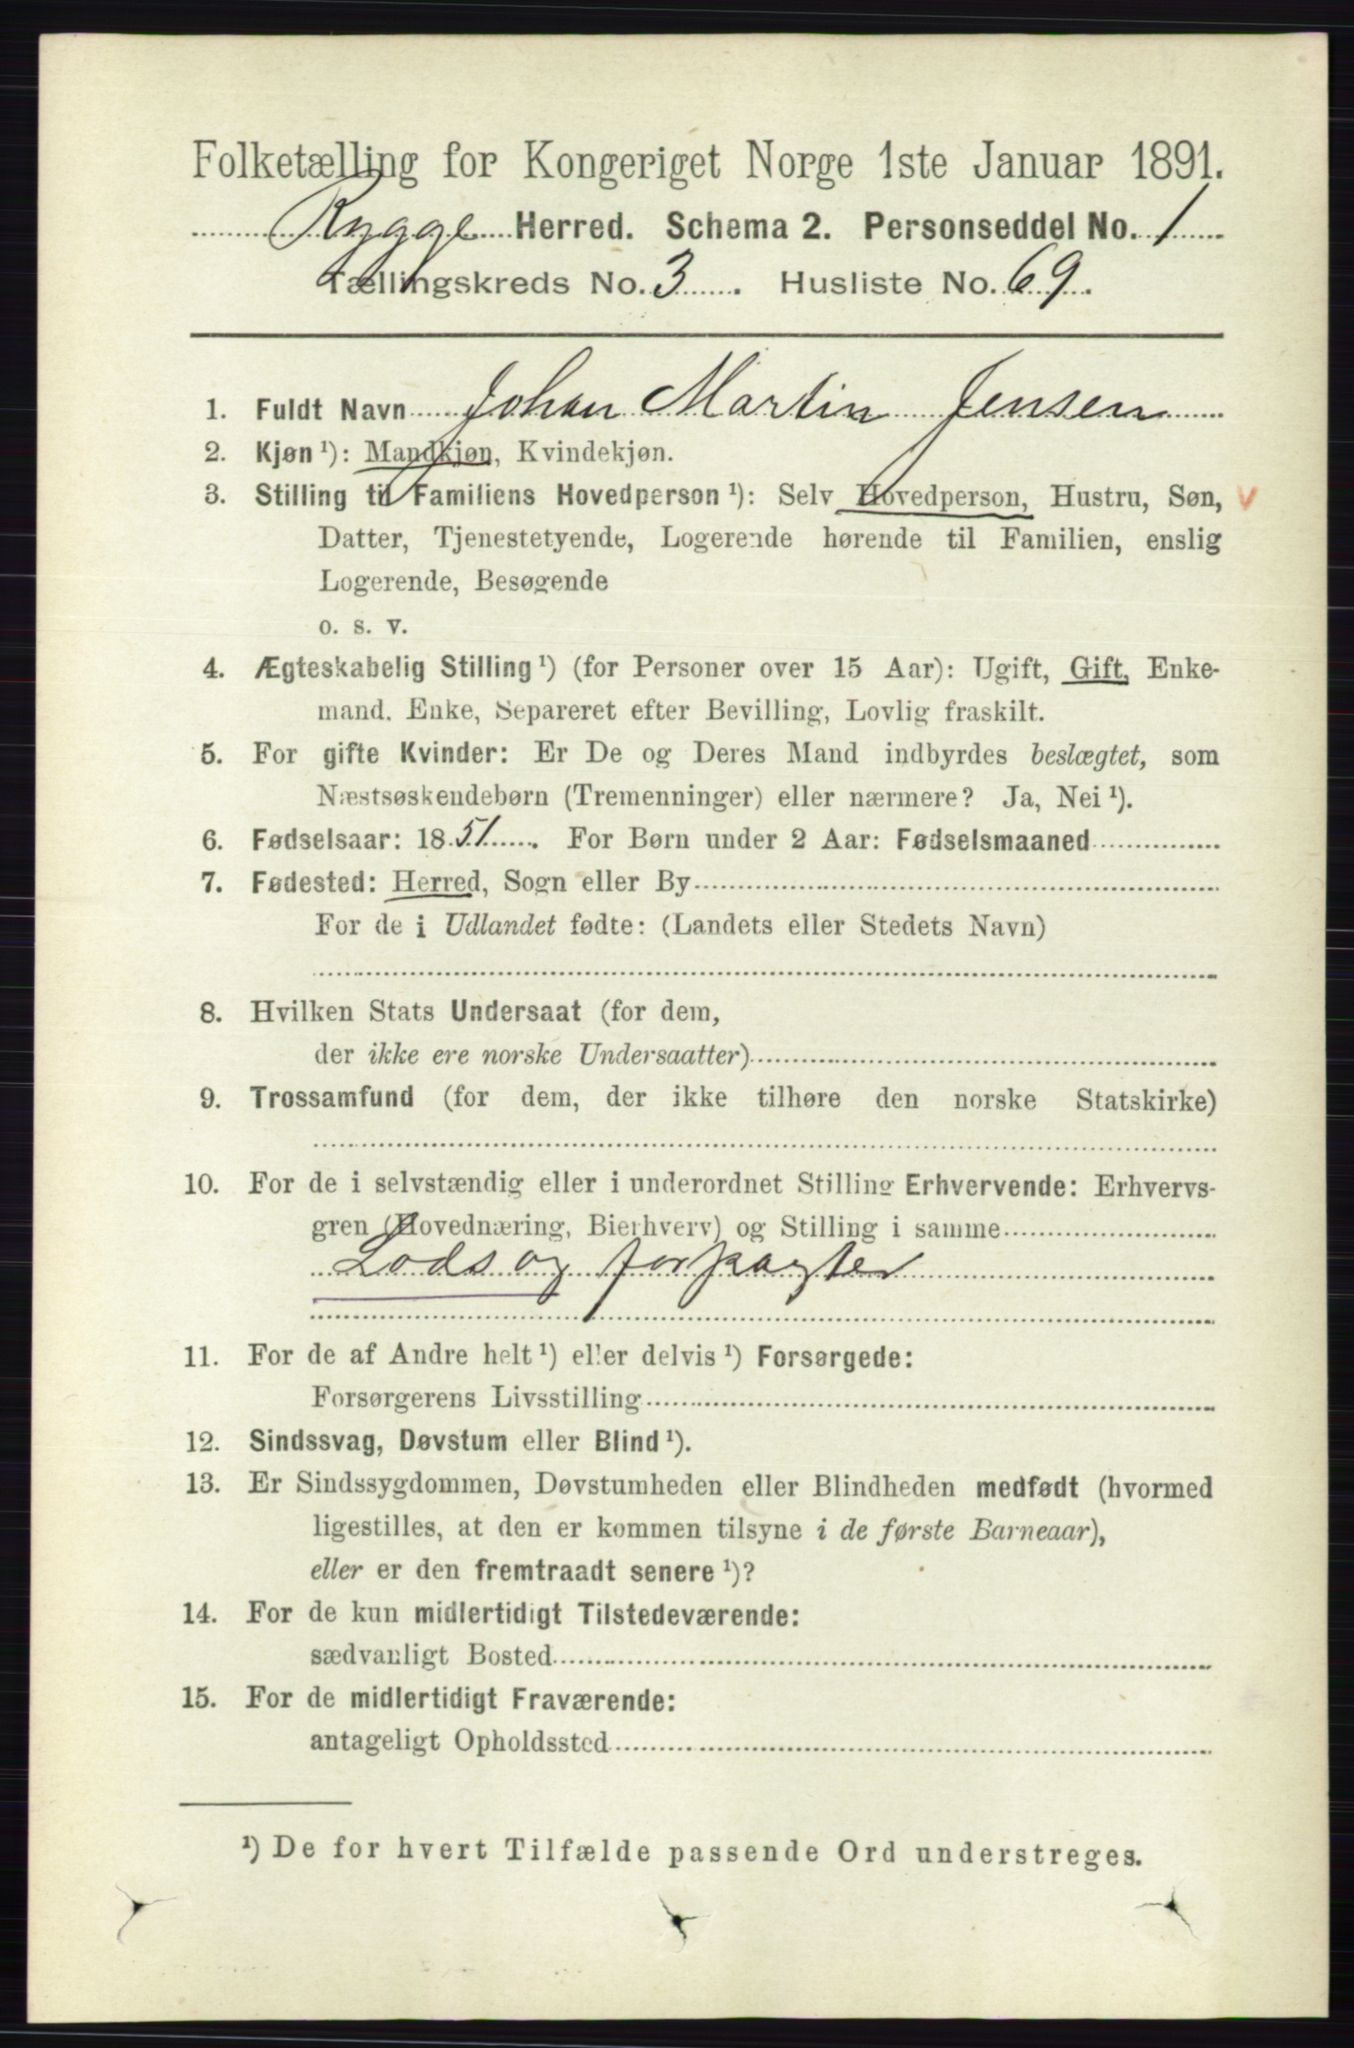 Folketælling for Kongeriget Norge 1ste Januar 1891.
Rygge Herred. Schema 2. Personseddel No. 1
Tællingskreds No. 3. Husliste No. 69.
1. Fuldt Navn Johan Martin Jensen
2. Kjøn¹): Mandkjøn, Kvindekjøn.
3. Stilling til Familiens Hovedperson¹): Selv Hovedperson, Hustru, Søn, v
Datter, Tjenestetyende, Logerende hørende til Familien, enslig
Logerende, Besøgende
o. s. v.
4. Ægteskabelig Stilling¹) (for Personer over 15 Aar): Ugift, Gift, Enke-
mand, Enke, Separeret efter Bevilling, Lovlig fraskilt.
5. For gifte Kvinder: Er De og Deres Mand indbyrdes beslægtet, som
Næstsøskendebørn (Tremenninger) eller nærmere? Ja, Nei¹).
6. Fødselsaar: 1851. For Børn under 2 Aar: Fødselsmaaned
7. Fødested: Herred, Sogn eller By
For de i Udlandet fødte: (Landets eller Stedets Navn)
8. Hvilken Stats Undersaat (for dem,
der ikke ere norske Undersaatter)
9. Trossamfund (for dem, der ikke tilhøre den norske Statskirke)
10. For de i selvstændig eller i underordnet Stilling Erhvervende: Erhvervs-
gren (Hovednæring, Bierhverv) og Stilling i samme
Lods og forpagter
11. For de af Andre helt¹) eller delvis¹) Forsørgede:
Forsørgerens Livsstilling
12. Sindssvag, Døvstum eller Blind¹).
13. Er Sindssygdommen, Døvstumheden eller Blindheden medfødt (hvormed
ligestilles, at den er kommen tilsyne i de første Barneaar),
eller er den fremtraadt senere¹)?
14. For de kun midlertidigt Tilstedeværende:
sædvanligt Bosted
15. For de midlertidigt Fraværende:
antageligt Opholdssted
¹) De for hvert Tilfælde passende Ord understreges.